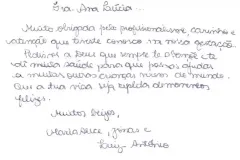 Dra. Ana Lúcia...
Muito obrigada pelo profissionalismo, carinho e
atenção que teve conosco na nossa gestação.
Pedimos a Deus que sempre te abençõe e te
dê muita saúde para que possa ajudar
a muitas outras crianças nesse mundo.
Que a tua vida seja repleta de momentos
felizes.
Muitos beijos,
Maria, Jonas e
Luiz Antônio